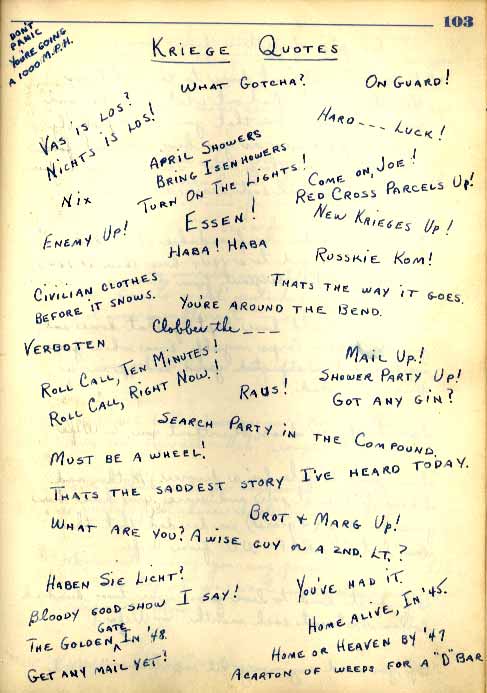 103
DON'T
PANIC
YOU'RE GOING
A 1000 M.P.H.
KRIEGE QUOTES
WHAT GOTCHA?
ON GUARD!
VAS IS LOS?
NICHTS IS LOS!
HARD --- LUCK!
APRIL SHOWERS
BRING ISENHOWERS
TURN ON THE LIGHTS!
COME ON, JOE!
RED CROSS PARCELS UP!
NIX
NEW KRIEGES UP!
ESSEN!
ENEMY UP!
HABA! HABA
RUSSKIE KOM!
CIVILIAN CLOTHES
BEFORE IT SNOWS.
THATS THE WAY IT GOES.
YOU'RE AROUND THE BEND.
Clobber the ---
VERBOTEN
ROLL CALL, TEN MINUTES!
ROLL CALL, RIGHT NOW!
MAIL UP!
SHOWER PARTY UP!
GOT ANY GIN?
RAUS!
SEARCH PARTY IN THE COMPOUND.
MUST BE A WHEEL!
THATS THE SADDEST STORY I'VE HEARD TODAY.
BROT + MARG UP!
WHAT ARE YOU? A WISE GUY OR A 2ND. LT.?
HABEN SIE LICHT?
YOU'VE HAD IT.
BLOODY GOOD SHOW I SAY!
HOME ALIVE, IN '45.
THE GOLDEN GATE IN '48.
HOME OR HEAVEN BY '47
GET ANY MAIL YET!
A CARTON OF WEEDS FOR A "D" BAR